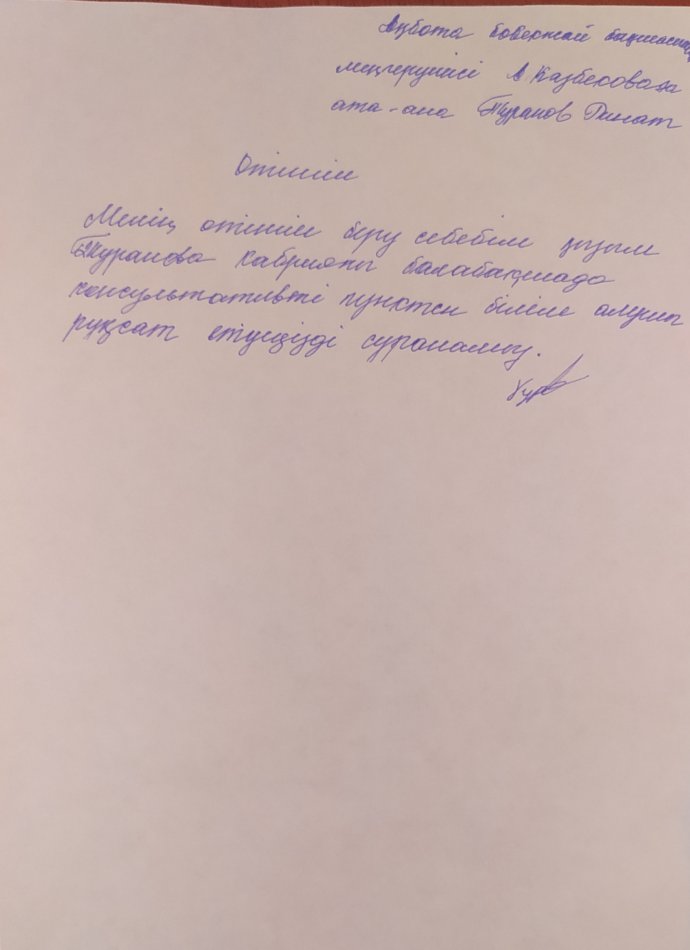 Ақбота бөбекжай бақшасының
меңгерушісі А Казбековаға
ата-ана Туранов Ринат
Өтініш
Менің өтініш беру себебім қызым
Туранова балабақшада
консультативті пунктен білім алуын
рұқсат етуіңізді сұранамыз.